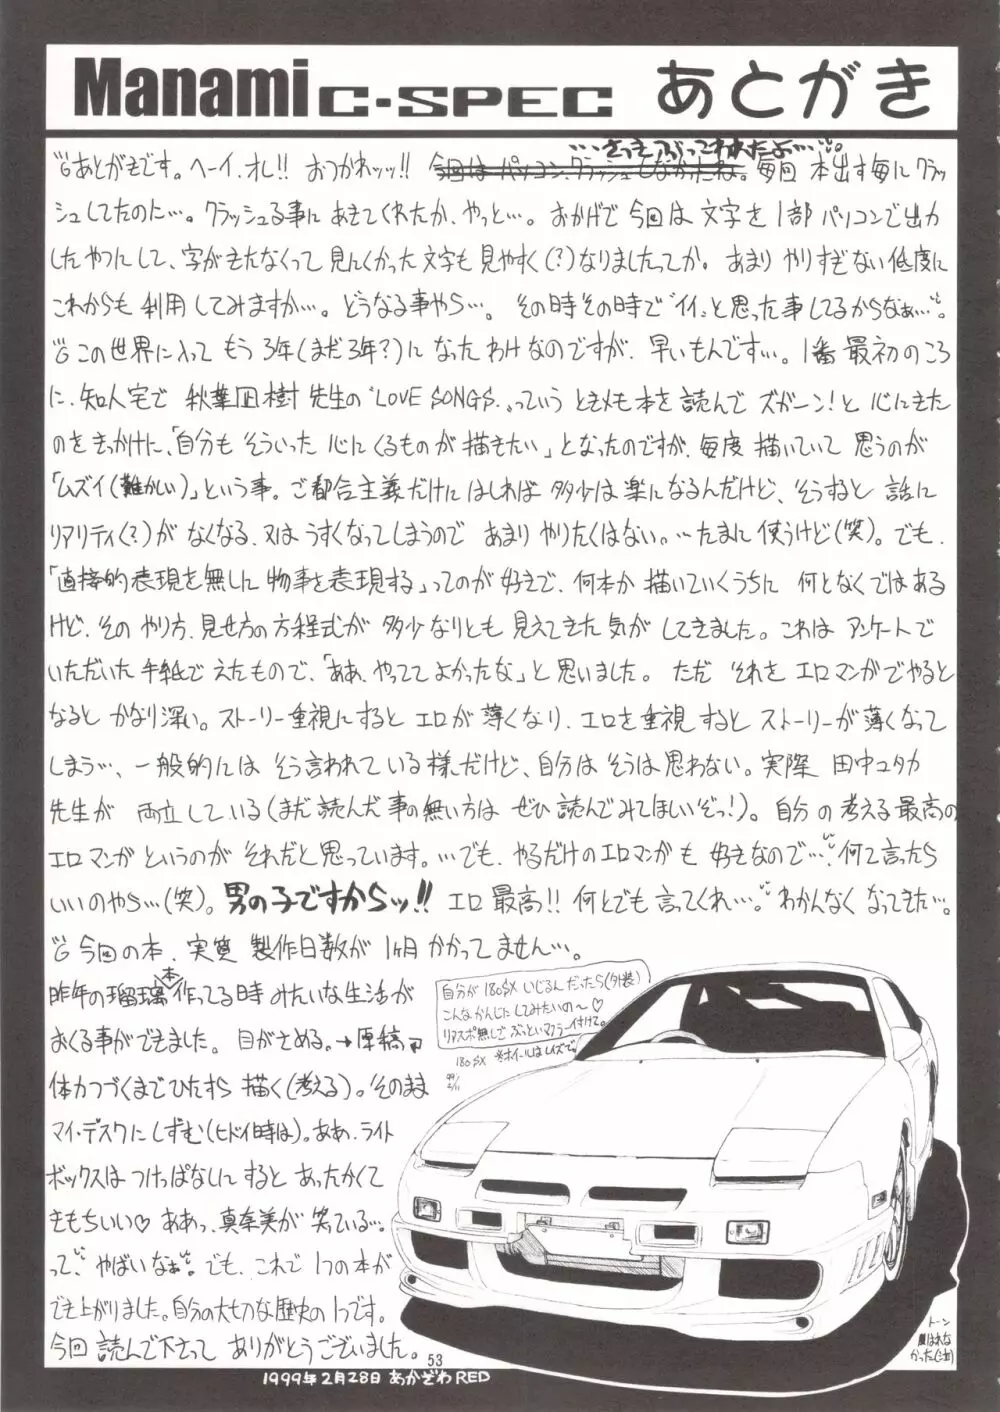 Manami C-SPEC あとがき
…さっきぶってわれたよ…。
あとがきです。ヘーイ、オレ!! おつかれッッ!! 今回はパソコン、クラッシュしなかったね。毎回 本出す毎にクラッ
シュしてたのに…。クラッシュる事に あきてくれたか、やっと…。おかげで 今回は 文字を 1部 パソコンで出力
したやつにして、字がきたなくって 見にくかった 文字も 見やすく(?)なりましたってか。あまり やりすぎない 低度に
これからも 利用してみますか…。どうなる事やら…。その時その時で“イイ”と思った事してるからなぁ…。
この世界に入って もう 3年(まだ3年?)に なったわけなのですが、早いもんです…。1番最初のころ
に、知人宅で 秋葉凪樹先生の“LOVE SONGS”っていう ときメモ本を 読んで ズガーン!と 心にきた
のをきっかけに、「自分も そういった 心にくるものが 描きたい」となったのですが、毎度 描いていて 思うのが
「ムズイ(難かしい)」という事。ご都合主義だけに はしれば 多少は 楽になるんだけど、そうすると 話に
リアリティ(?)が なくなる、又は うすくなってしまうので あまり やりたくはない。…たまに 使うけど(笑)。でも、
「直接的表現を無しに 物事を表現する」ってのが 好きで、何本か 描いていくうちに 何となくではある
けど、その やり方、見せ方の方程式が 多少なりとも 見えてきた気が してきました。これは アンケートで
いただいた 手紙で えたもので、「ああ、やってて よかったな」と 思いました。ただ それを エロマンガでやると
なると かなり深い。ストーリー重視にすると エロが 薄くなり、エロを重視すると ストーリーが 薄くなって
しまう…、一般的には そう言われている様だけど、自分は そうは 思わない。実際 田中ユタカ
先生が 両立している(まだ読んだ事の無い方は ぜひ読んでみてほしいぞっ!)。自分の考える最高の
エロマンガ というのが それだと 思っています。…でも、やるだけのエロマンガも 好きなので…、何て言ったら
いいのやら…(笑)。男の子ですからッ!! エロ 最高!! 何とでも 言ってくれ…。わかんなくなってきた…。
今回の本、実質 製作日数が 1ヶ月 かかってません…。
昨年の瑠璃本作ってる時みたいな生活が
おくる事ができました。目がさめる。→原稿
体力つづくまでひたすら 描く(考える)。そのまま
マイ・デスクに しずむ(ヒドイ時は)。ああ、ライト
ボックスは つけっぱなしに すると あったかくて
きもちいい♡ ああっ、真奈美が 笑ている…。
って、やばいなぁ。でも、これで 1つの本が
でき上がりました。自分の大切な歴史の1つです。
今回 読んで下さって ありがとうございました。
自分が 180SX いじるんだったら(外装)
こんなかんじにしてみたいの〜♡
リアスポ無しで ぶっといマフラー付けて。
180SX ※ホイールはレイズで。
99/2/11
トーン
はれな
かった(泣)
53
1999年2月28日 あかざわRED